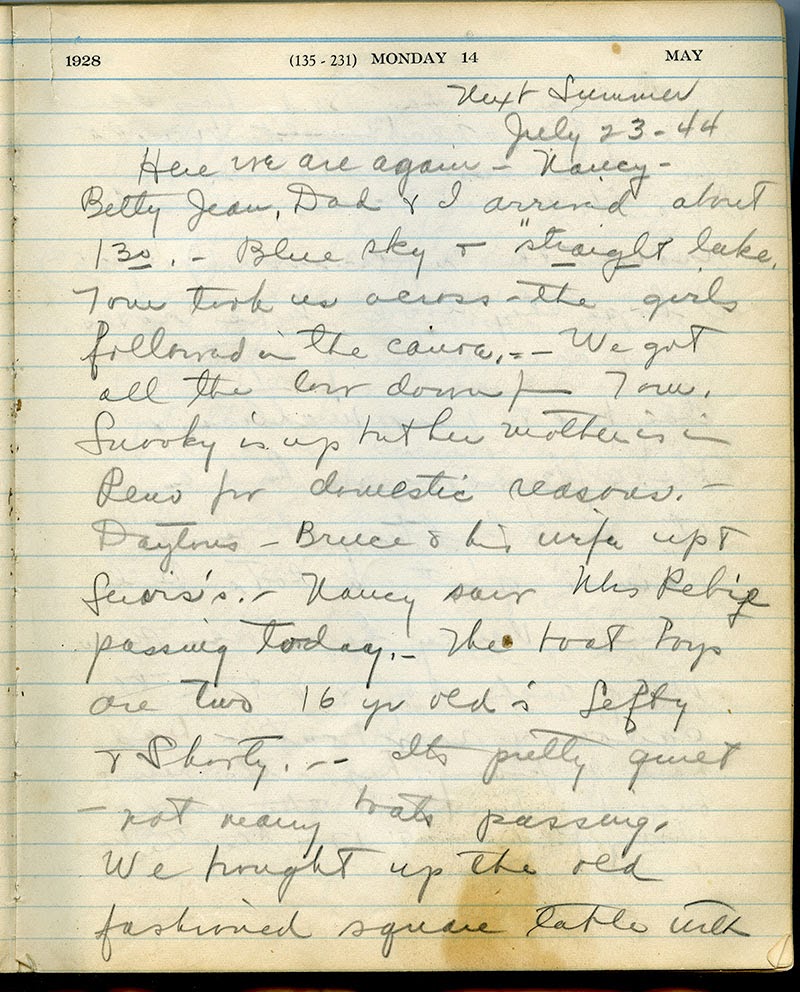 1928 (135 - 231) MONDAY 14 MAY
Next Summer
July 23 - 44
Here we are again - Nancy -
Betty Jean, Dad & I arrived about
1 30. - Blue sky & "straight lake.
Tom took us across - the girls
followed in the canoe, - - We got
all the low down fm Tom.
Snooky is up but her mother is in
Reno for domestic reasons. -
Daytons - Bruce & his wife up &
. - Nancy saw Mrs Rebig
passing today. - The boat boys
are two 16 yr old's Lefty
& Shorty. - - Its pretty quiet
- not many boats passing.
We brought up the old
fashioned square table with